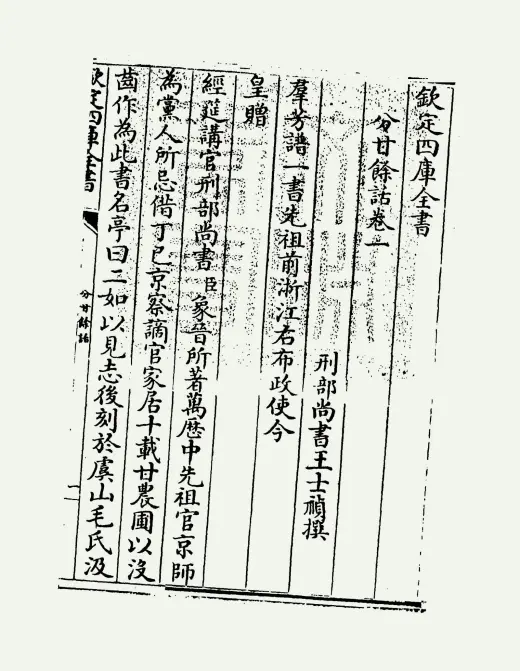 欽定四庫全書
分甘餘話卷一
刑部尚書王士禎撰
羣芳譜一書先祖前浙江右布政使今
皇贈
經筵講官刑部尚書臣象晉所著萬厯中先祖官京師
為黨人所忌借丁巳京察謫官家居十載甘農圃以沒
齒作為此書名亭曰二如以見志後刻於虞山毛氏汲
欽定四庫全書
分甘餘話
一